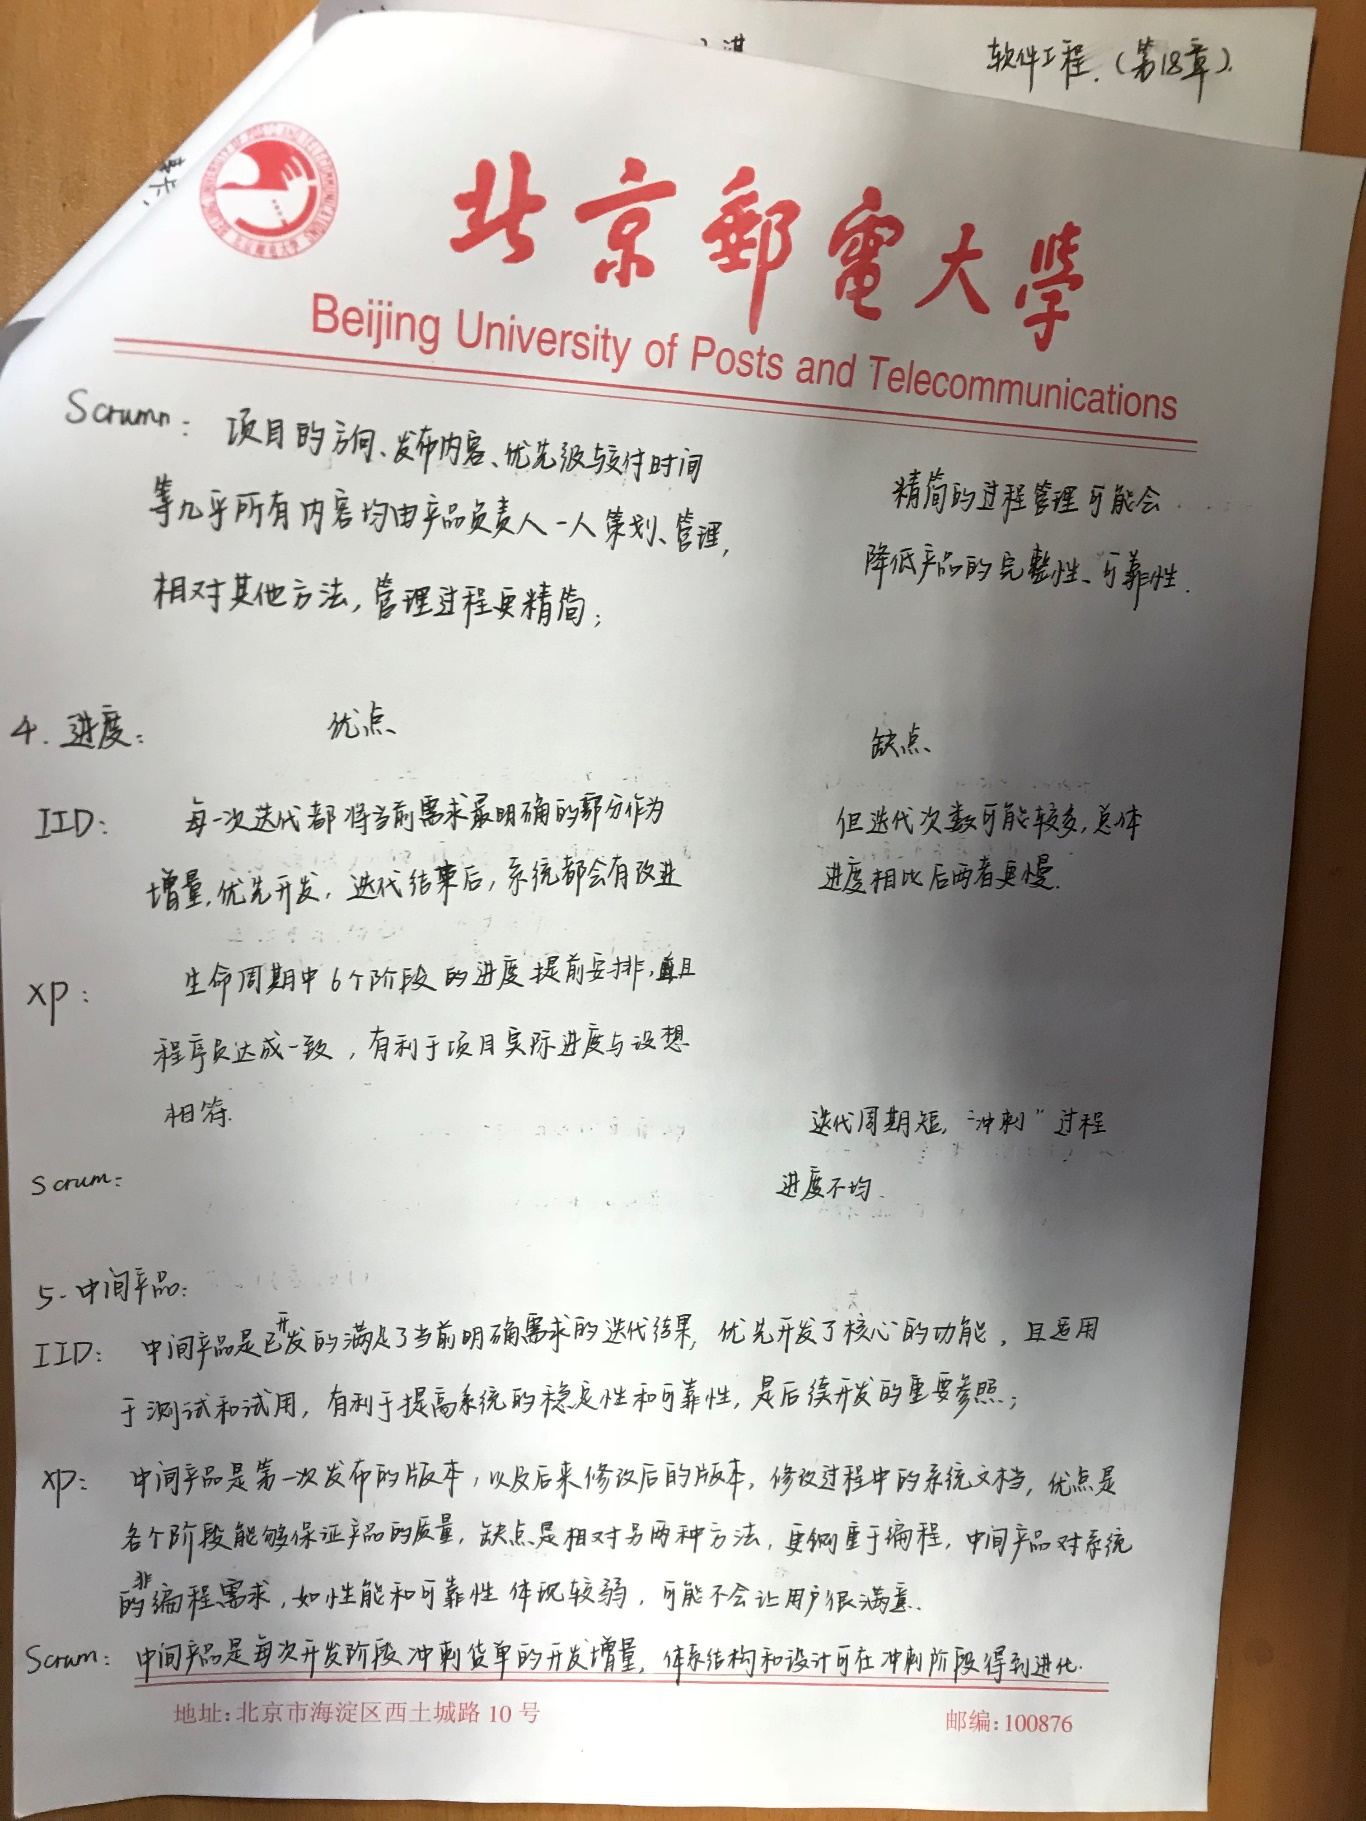 软件工程.(第18章).
北京郵電大学
Beijing University of Posts and Telecommunications
Scrumn: 项目的方向、发布内容、优先级与交付时间
等几乎所有内容均由产品负责人一人策划、管理,
相对其他方法,管理过程更精简;
精简的过程管理可能会
降低产品的完整性、可靠性.
4. 进度: 优点 缺点
IID: 每一次迭代都将当前需求最明确的部分作为
增量,优先开发,迭代结束后,系统都会有改进
但迭代次数可能较多,总体
进度相比后两者更慢.
XP: 生命周期中6个阶段的进度提前安排,且
程序员达成一致,有利于项目实际进度与设想
相符.
Scrum: 迭代周期短,“冲刺”过程
进度不均.
5. 中间产品:
IID: 中间产品是已开发的满足了当前明确需求的迭代结果,优先开发了核心的功能,且适用
于测试和试用,有利于提高系统的稳定性和可靠性,是后续开发的重要参照;
XP: 中间产品是第一次发布的版本,以及后来修改后的版本,修改过程中的系统文档,优点是
各个阶段能够保证产品的质量,缺点是相对另两种方法,更侧重于编程,中间产品对系统
的非编程需求,如性能和可靠性体现较弱,可能不会让用户很满意.
Scrum: 中间产品是每次开发阶段冲刺货单的开发增量,体系结构和设计可在冲刺阶段得到进化.
地址:北京市海淀区西土城路10号 邮编:100876